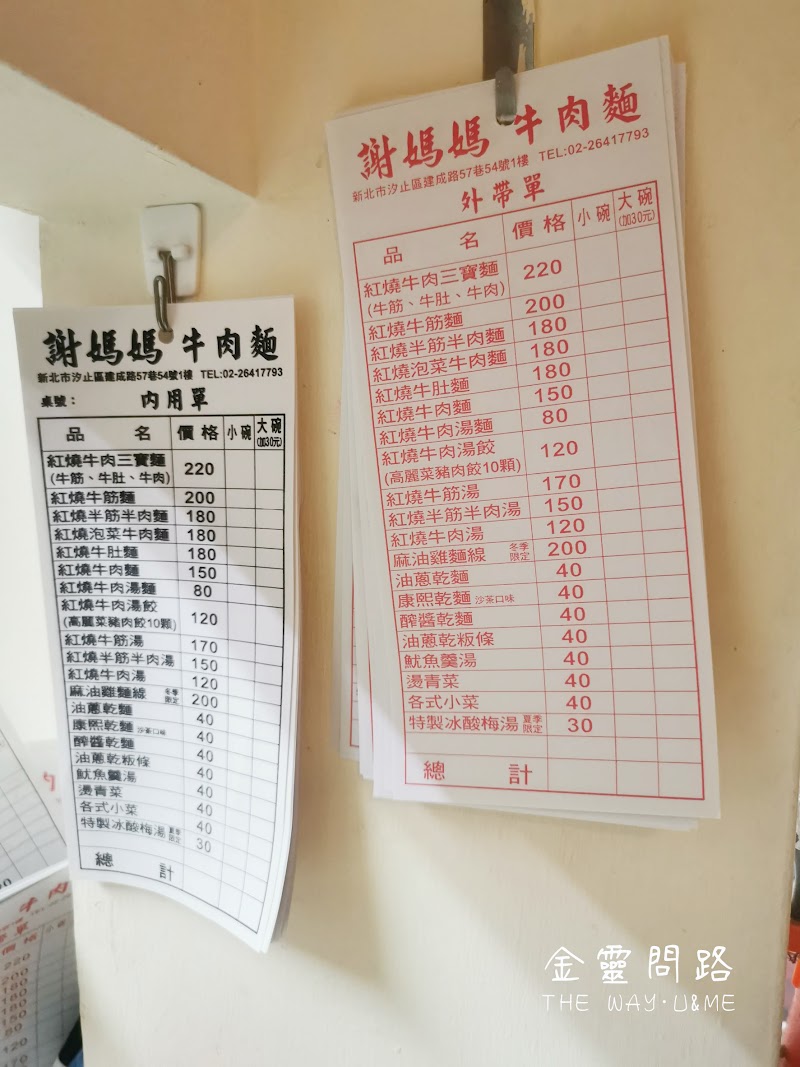 謝媽媽 牛肉麵
新北市汐止區建成路57巷54號1樓 TEL:02-26417793
桌號： 內用單
品 名 價格 小碗 大碗(加30元)
紅燒牛肉三寶麵 220
(牛筋、牛肚、牛肉)
紅燒牛筋麵 200
紅燒半筋半肉麵 180
紅燒泡菜牛肉麵 180
紅燒牛肚麵 180
紅燒牛肉麵 150
紅燒牛肉湯麵 80
紅燒牛肉湯餃 120
(高麗菜豬肉餃10顆)
紅燒牛筋湯 170
紅燒半筋半肉湯 150
紅燒牛肉湯 120
麻油雞麵線 冬季限定 200
油蔥乾麵 40
康熙乾麵 沙茶口味 40
醡醬乾麵 40
油蔥乾粄條 40
魷魚羹湯 40
燙青菜 40
各式小菜 40
特製冰酸梅湯 夏季限定 30
總 計
謝媽媽 牛肉麵
新北市汐止區建成路57巷54號1樓 TEL:02-26417793
外帶單
品 名 價格 小碗 大碗(加30元)
紅燒牛肉三寶麵 220
(牛筋、牛肚、牛肉)
紅燒牛筋麵 200
紅燒半筋半肉麵 180
紅燒泡菜牛肉麵 180
紅燒牛肚麵 180
紅燒牛肉麵 150
紅燒牛肉湯麵 80
紅燒牛肉湯餃 120
(高麗菜豬肉餃10顆)
紅燒牛筋湯 170
紅燒半筋半肉湯 150
紅燒牛肉湯 120
麻油雞麵線 冬季限定 200
油蔥乾麵 40
康熙乾麵 沙茶口味 40
醡醬乾麵 40
油蔥乾粄條 40
魷魚羹湯 40
燙青菜 40
各式小菜 40
特製冰酸梅湯 夏季限定 30
總 計
牛肉
帶單
價格 小
220
200
180
180
180
150
80
120
170
金靈問路
THE WAY·U&ME